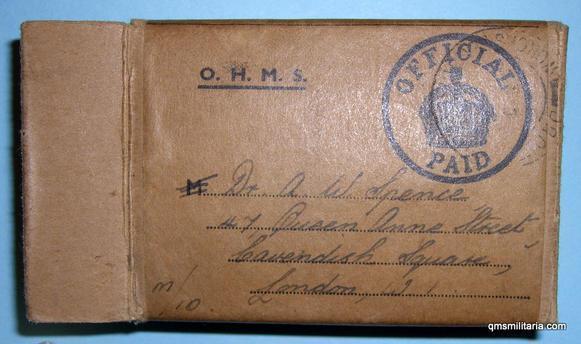 O. H. M. S.
OFFICIAL
PAID
M Dr. A W Spence
47 Queen Anne Street,
Cavendish Square,
London,
/10.
qmsmilitaria.com